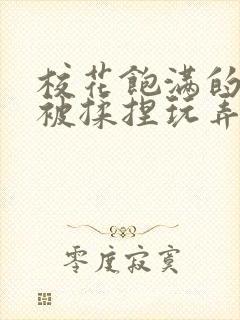 校花飽满的
被揉捏玩弄
零度寂寞